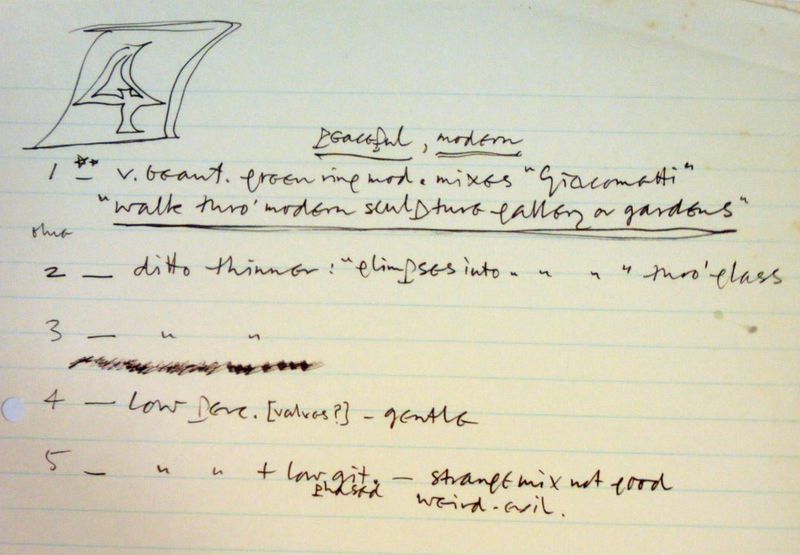 4
Peaceful, modern
1 - ** v. beaut. green ring mod. mixes "Giacometti"
"walk thro' modern sculpture gallery or gardens"
2 - ditto thinner: "glimpses into " " " " thro' glass
3 - " "
4 - Low Perc. [valves?] - gentle
5 - " " + low git. - strange mix not good
phased weird-evil.